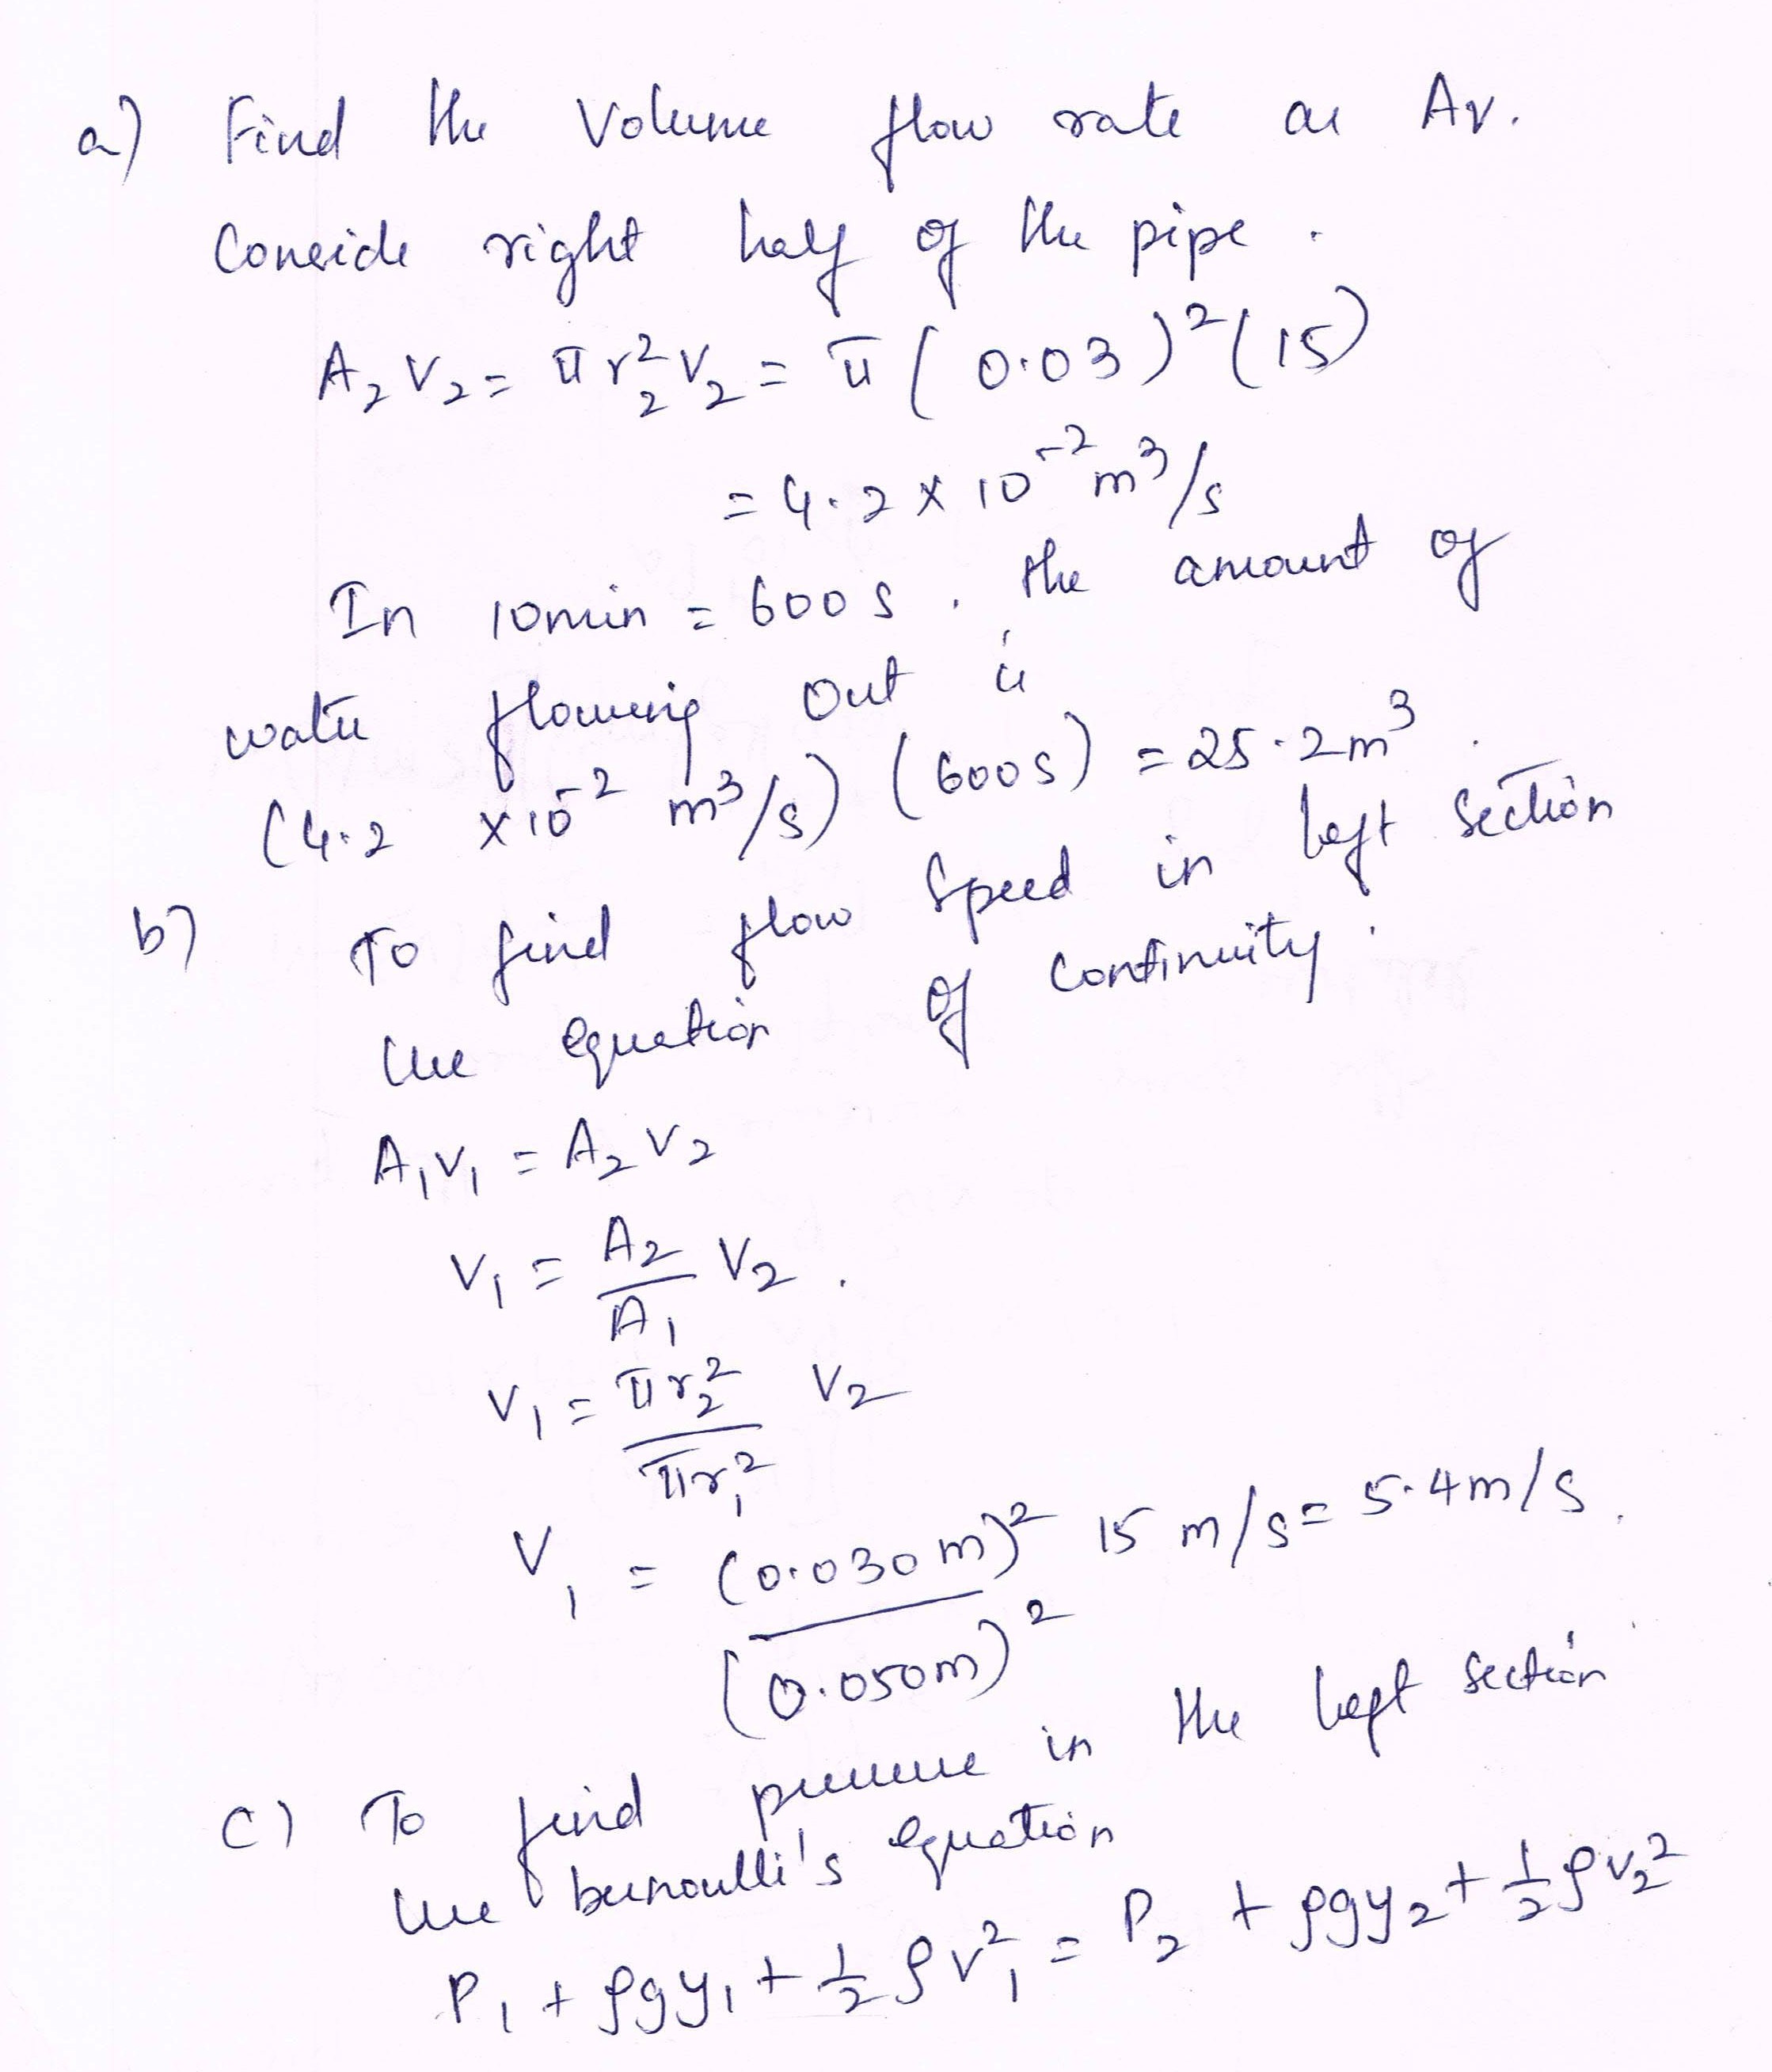 a) Find the Volume flow rate as Av.
Conside right half of the pipe.
A₂ V₂ = π r₂² V₂ = π (0.03)² (15)
= 4.2 × 10⁻² m³/s
In 10min = 600s. the amount of
water flowing out is
(4.2 × 10⁻² m³/s) (600s) = 25.2 m³.
b) To find flow speed in left section
use equation of continuity.
A₁V₁ = A₂V₂
V₁ = A₂/A₁ V₂.
V₁ = πr₂²/πr₁² V₂
V₁ = (0.030m)²/(0.050m)² 15 m/s = 5.4m/s.
c) To find pressure in the left section
use bernoulli's equation
P₁ + ρgy₁ + ½ ρv₁² = P₂ + ρgy₂ + ½ ρv₂²